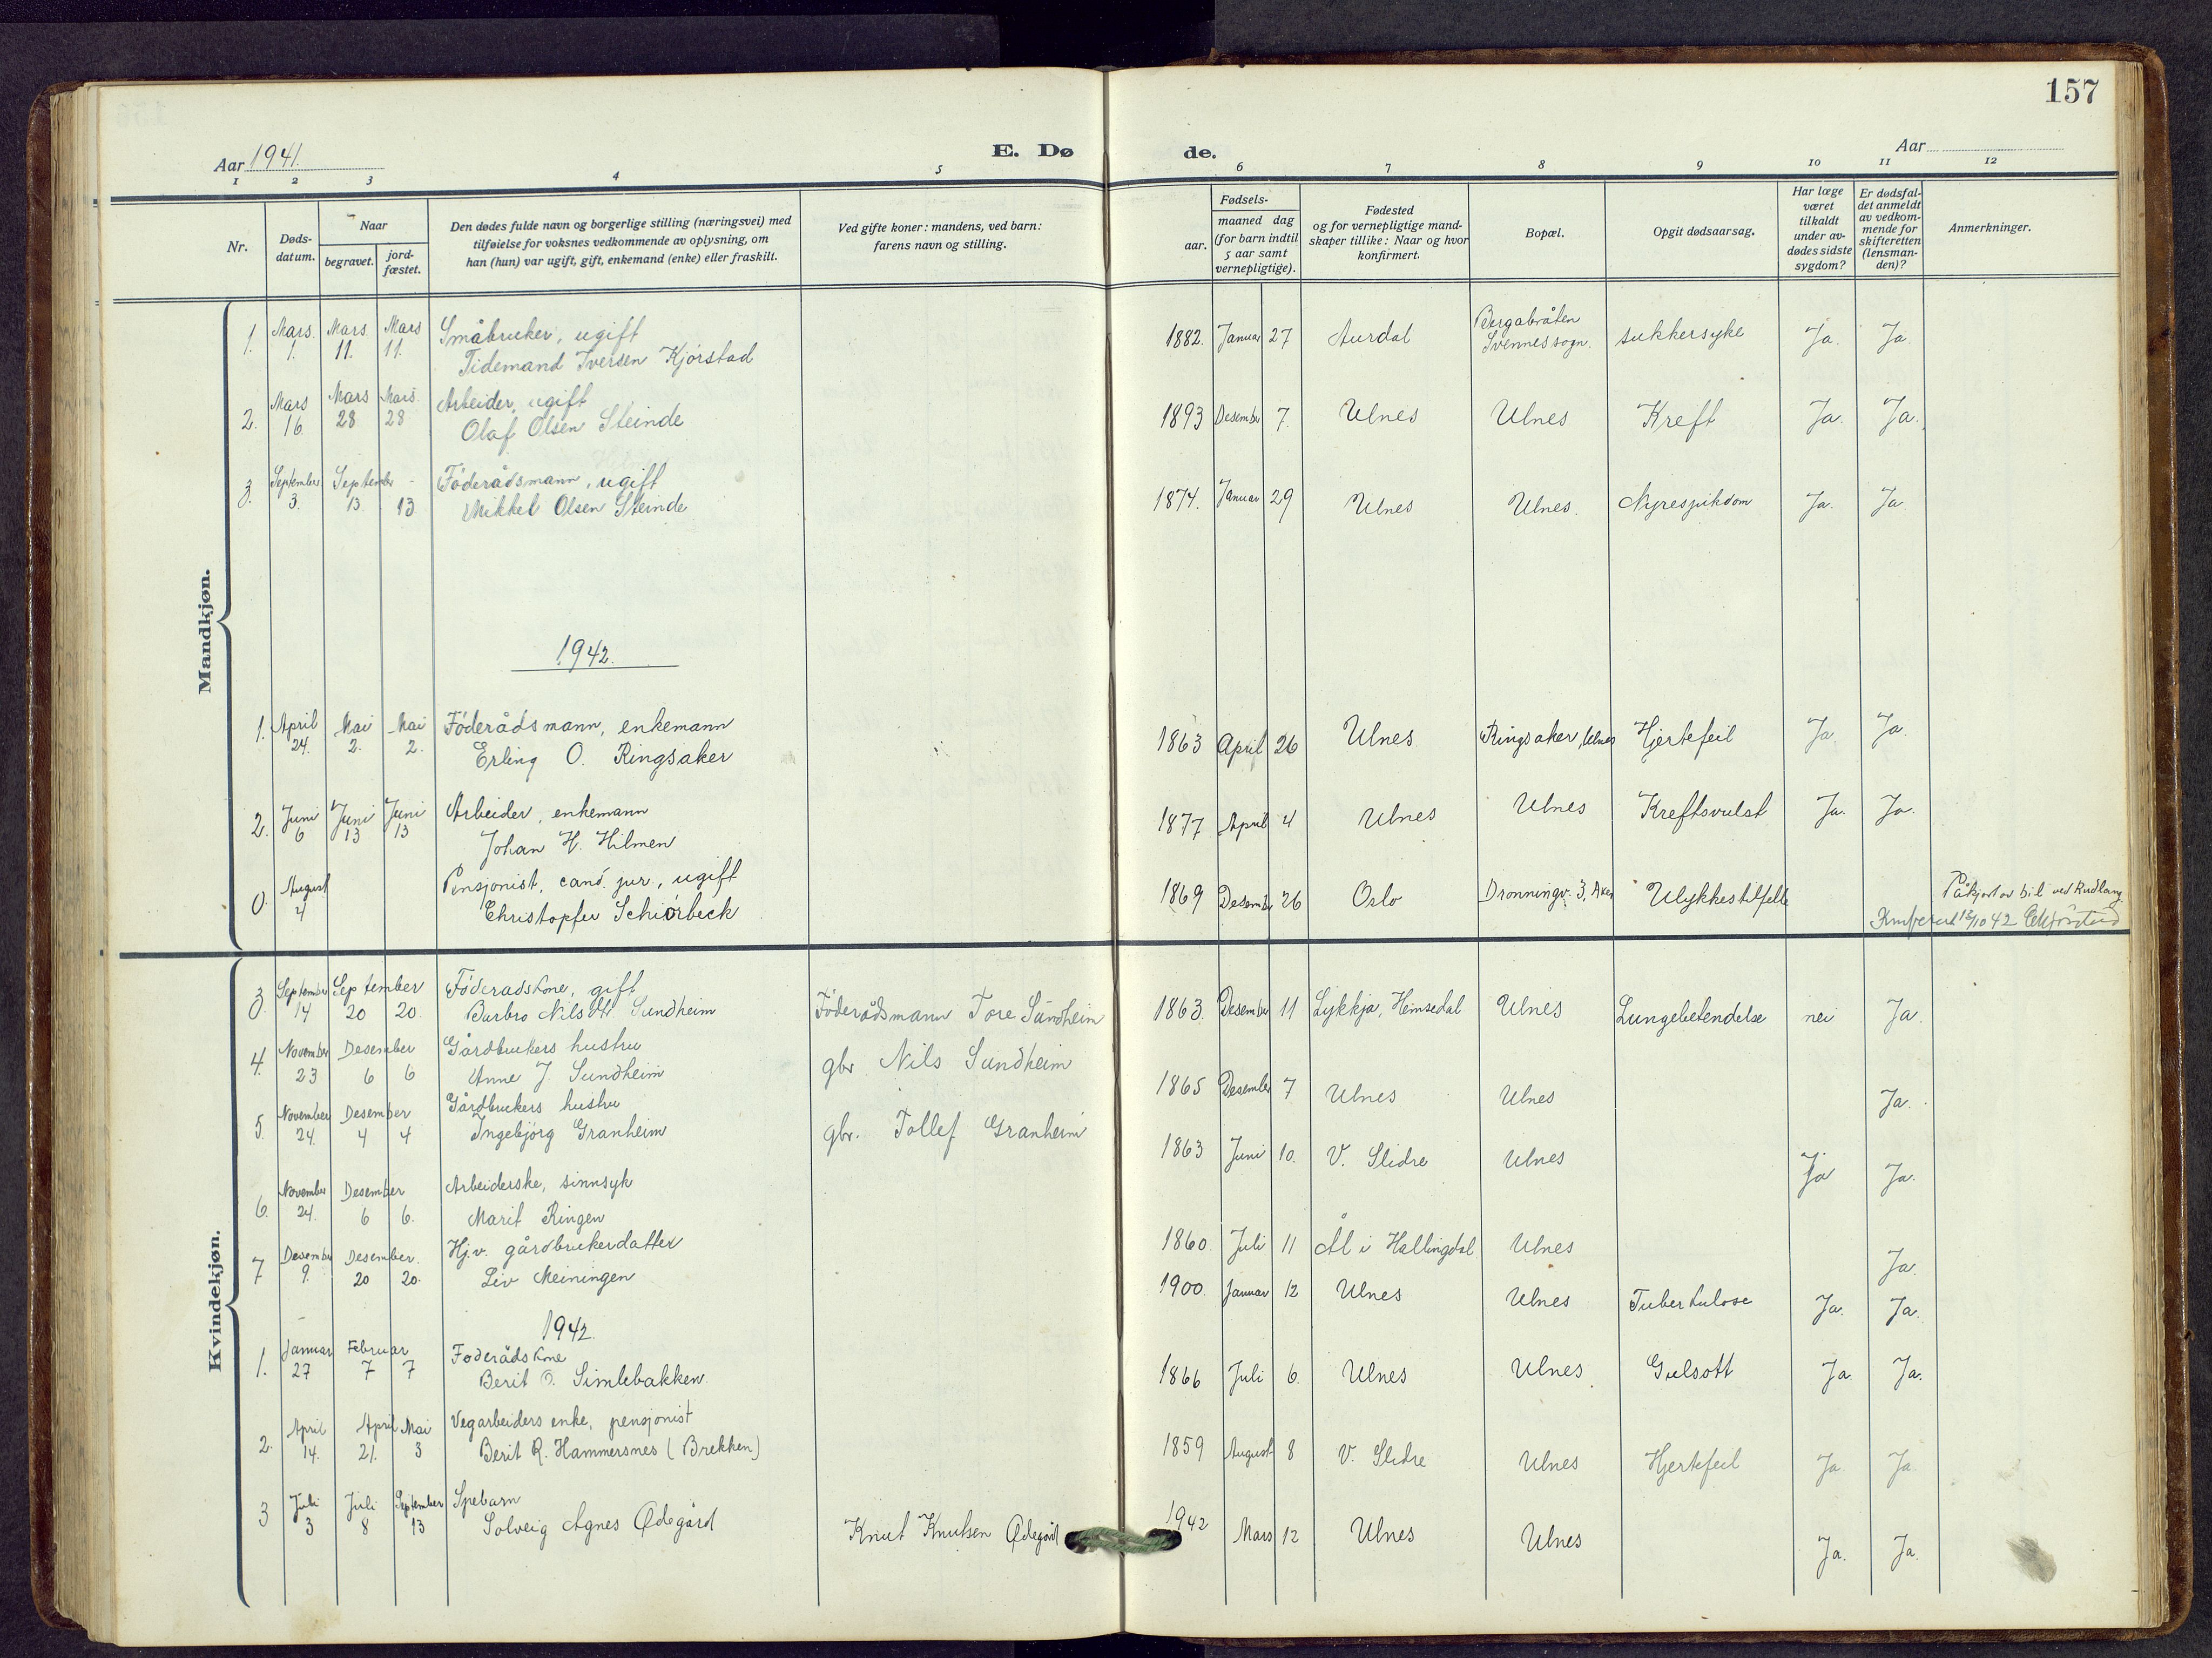 157
Aar 1941.
E. Dø de.
Aar
1 2 3 4 5 6 7 8 9 10 11 12
Nr.
Døds-
datum.
Naar
begravet.
jord-
fæstet.
Den dødes fulde navn og borgerlige stilling (næringsvei) med
tilføielse for voksnes vedkommende av oplysning, om
han (hun) var ugift, gift, enkemand (enke) eller fraskilt.
Ved gifte koner: mandens, ved barn:
farens navn og stilling.
Fødsels-
aar.
maaned dag
(for barn indtil
5 aar samt
vernepligtige).
Fødested
og for vernepligtige mand-
skaper tillike: Naar og hvor
konfirmert.
Bopæl.
Opgit dødsaarsag.
Har læge
været
tilkaldt
under av-
dødes sidste
sygdom?
Er dødsfal-
det anmeldt
av vedkom-
mende for
skifteretten
(lensman-
den)?
Anmerkninger.
Mandkjøn.
1. Mars. Mars. Mars Småbruker, ugift 1882. Januar 27 Aurdal Bergabråten sukkersyke Ja. Ja.
1. 11. 11. Tidemand Iversen Kjörstad Svennes sogn.
2. Mars Mars Mars. Arbeider, ugift 1893 Desember 7. Ulnes Ulnes Kreft Ja. Ja.
16. 28 28 Olaf Olsen Steinde
3. September September - Föderådsmann, ugift 1874. Januar 29 Ulnes Ulnes. Nyresjukdom Ja. Ja
3. 13. 13 Mikkel Olsen Steinde
1942.
1. April Mai Mai Föderådsmann, enkemann 1863 April 26 Ulnes Ringsaker, Ulnes Hjertefeil Ja. Ja.
24. 2. 2. Erling O. Ringsaker
2. Juni Juni Juni Arbeider, enkemann 1877 April 4 Ulnes Ulnes Kreftsvulst Ja. Ja.
6 13 13 Johan H. Hilmen
0. August Pensjonist, cand. jur., ugift 1869 Desember 26 Oslo Dronningv. 3, Aker Ulykkestilfelle Påkjørt av bil ved
4 Christopher Schiörbeck 13/10 42
Kvindekjøn.
3. September September Föderadskone, gift Föderådsmann Tore Sundheim 1863. Desember 11 Lykkja, Hemsedal Ulnes Lungebetendelse nei Ja.
14 20 20. Barbro Nilsdtr. Sundheim
4. November Desember Gårdbrukers hustru gbr Nils Sundheim 1865 Desember 7 Ulnes Ulnes Ja.
23 6 6 Anne J. Sundheim
5. November Desember Gårdbrukers hustru gbr. Tollef Granheim 1863 Juni 10. V. Slidre Ulnes Ja Ja.
24. 4 4 Ingebjörg Granheim
6. November Desember Arbeiderske, sinnsyk 1860. Juli 11 Ål i Hallingdal Ulnes Ja.
24. 6 6. Marit Ringen
7 Desember Desember. Hj.v. gårdbrukerdatter 1900. Januar 12 Ulnes Ulnes Tuberkulose Ja. Ja.
9. 20 20. Liv Meiningen
1942.
1. Januar Februar Føderådskone 1866 Juli 6. Ulnes Ulnes. Gulsott Ja. Ja.
27 7 7 Berit O. Simlebakken.
2. April April Mai Vegarbeiders enke, pensjonist 1859 August 8 V. Slidre Ulnes Hjertefeil Ja. Ja.
14. 21. 3 Berit R. Hammersnes (Brekken)
3 Juli Juli September Spebarn Knut Knutsen Ødegård 1942 Mars 12 Ulnes Ulnes Ja. Ja.
3 8 13 Solveig Agnes Ødegård